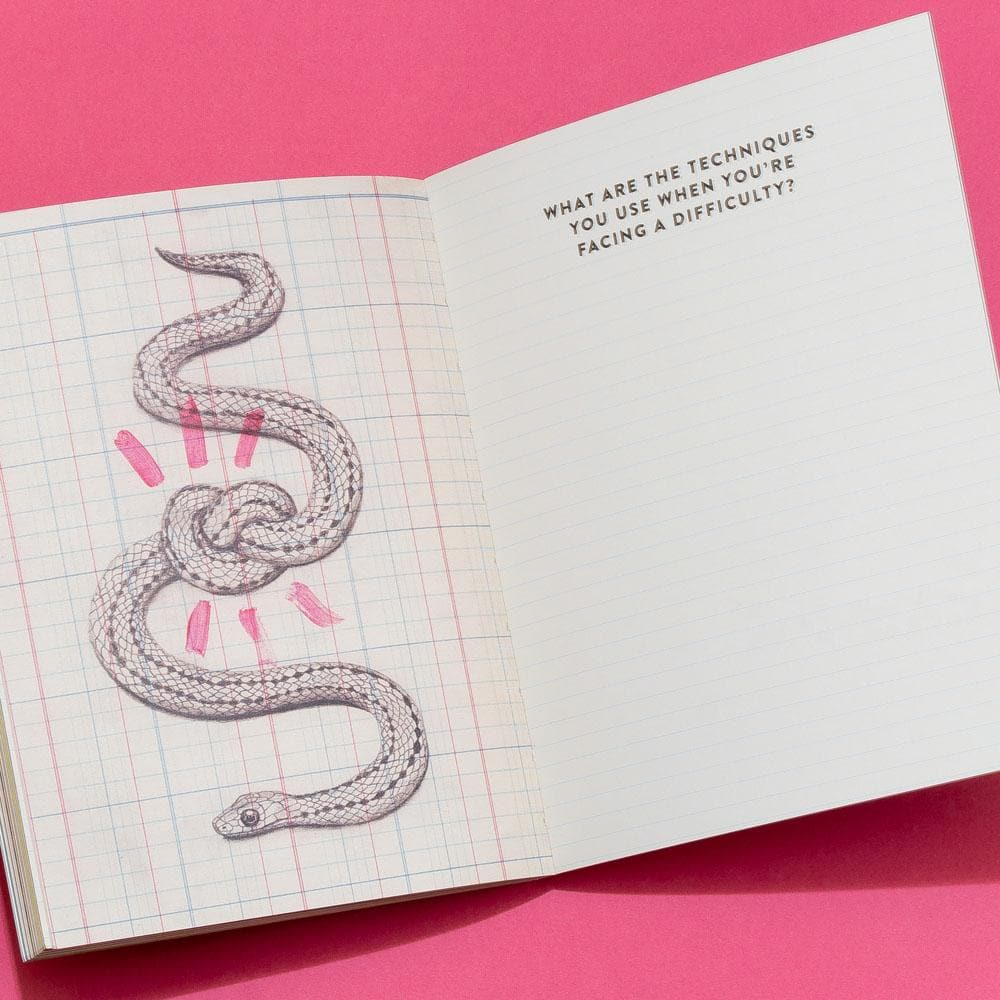 WHAT ARE THE TECHNIQUES
YOU USE WHEN YOU'RE
FACING A DIFFICULTY?